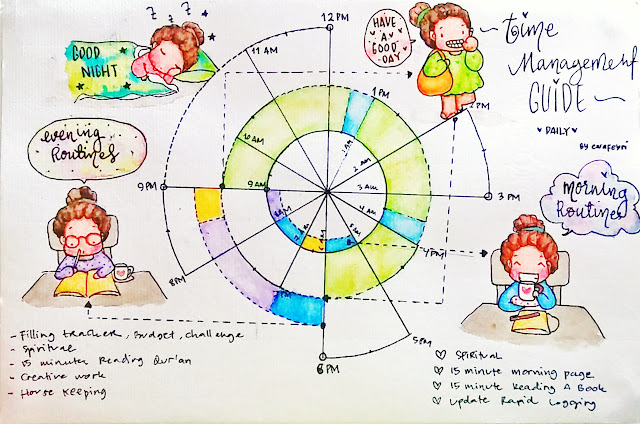 time
Management
GUIDE
• DAILY •
GOOD
NIGHT
z z z
HAVE
A
GOOD
DAY
evening
Routines
morning
Routines
12 PM
11 AM
1 PM
2 PM
10 AM
2 AM
9 PM
9 AM
3 AM
3 PM
4 AM
4 PM
8 PM
5 PM
6 PM
- Filling tracker, Budget, challenge
- Spiritual
- 15 minutes Reading Qur'an
- Creative work
- House Keeping
Spiritual
15 minute morning page
15 minute Reading A Book
update Rapid Logging